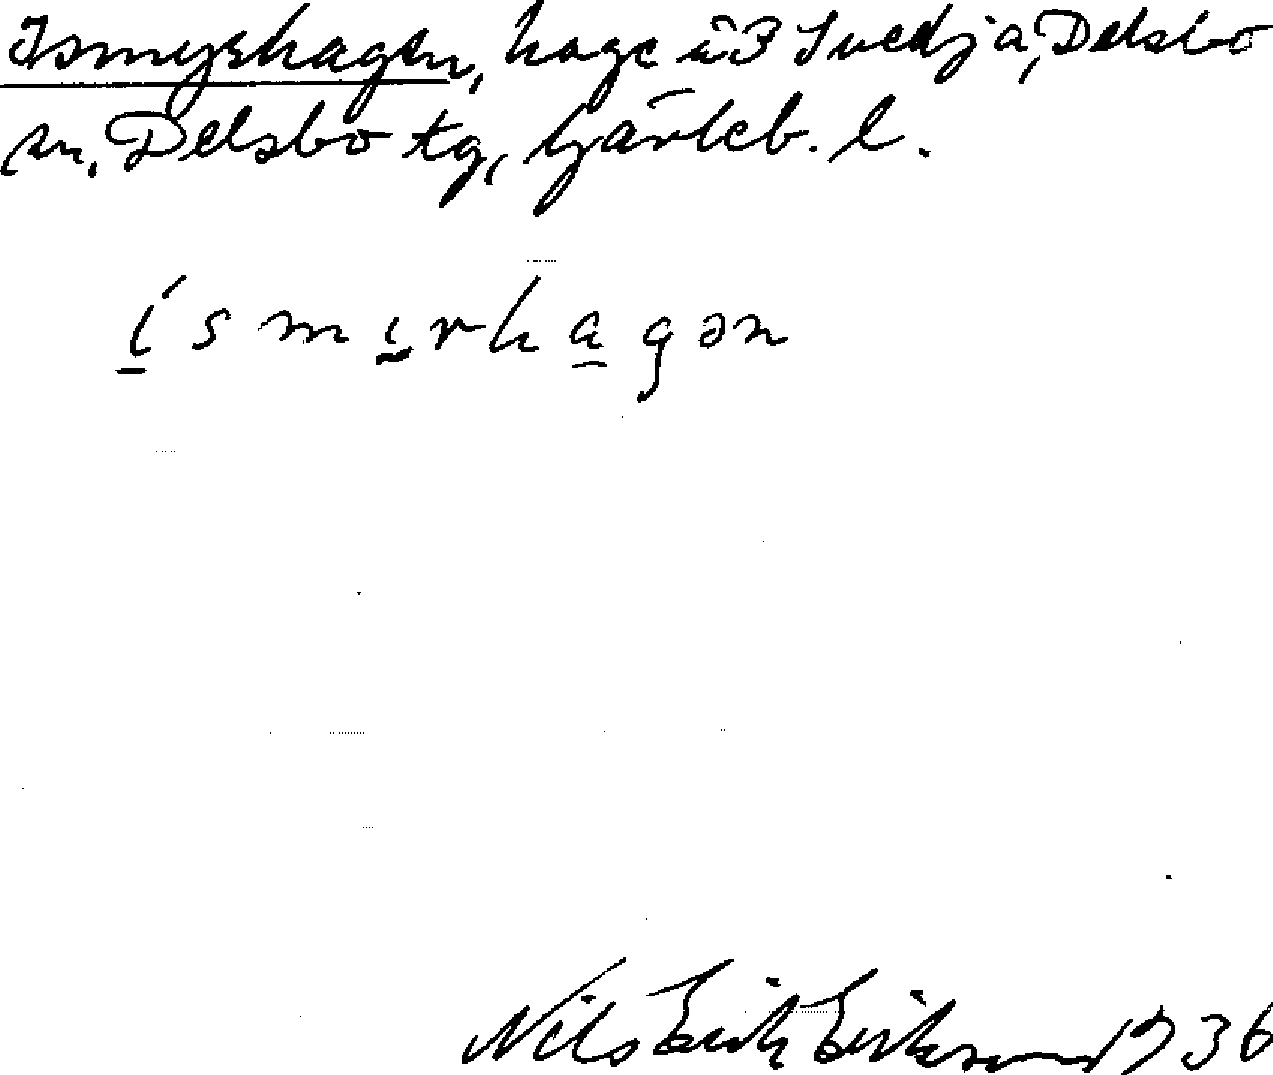 Ismyrhagen, hage ü 3 Svedja, Delsbo
sn, Delsbo tg, Gävleb. l.
ismırhagən
Nils Erik Eriksson 1936